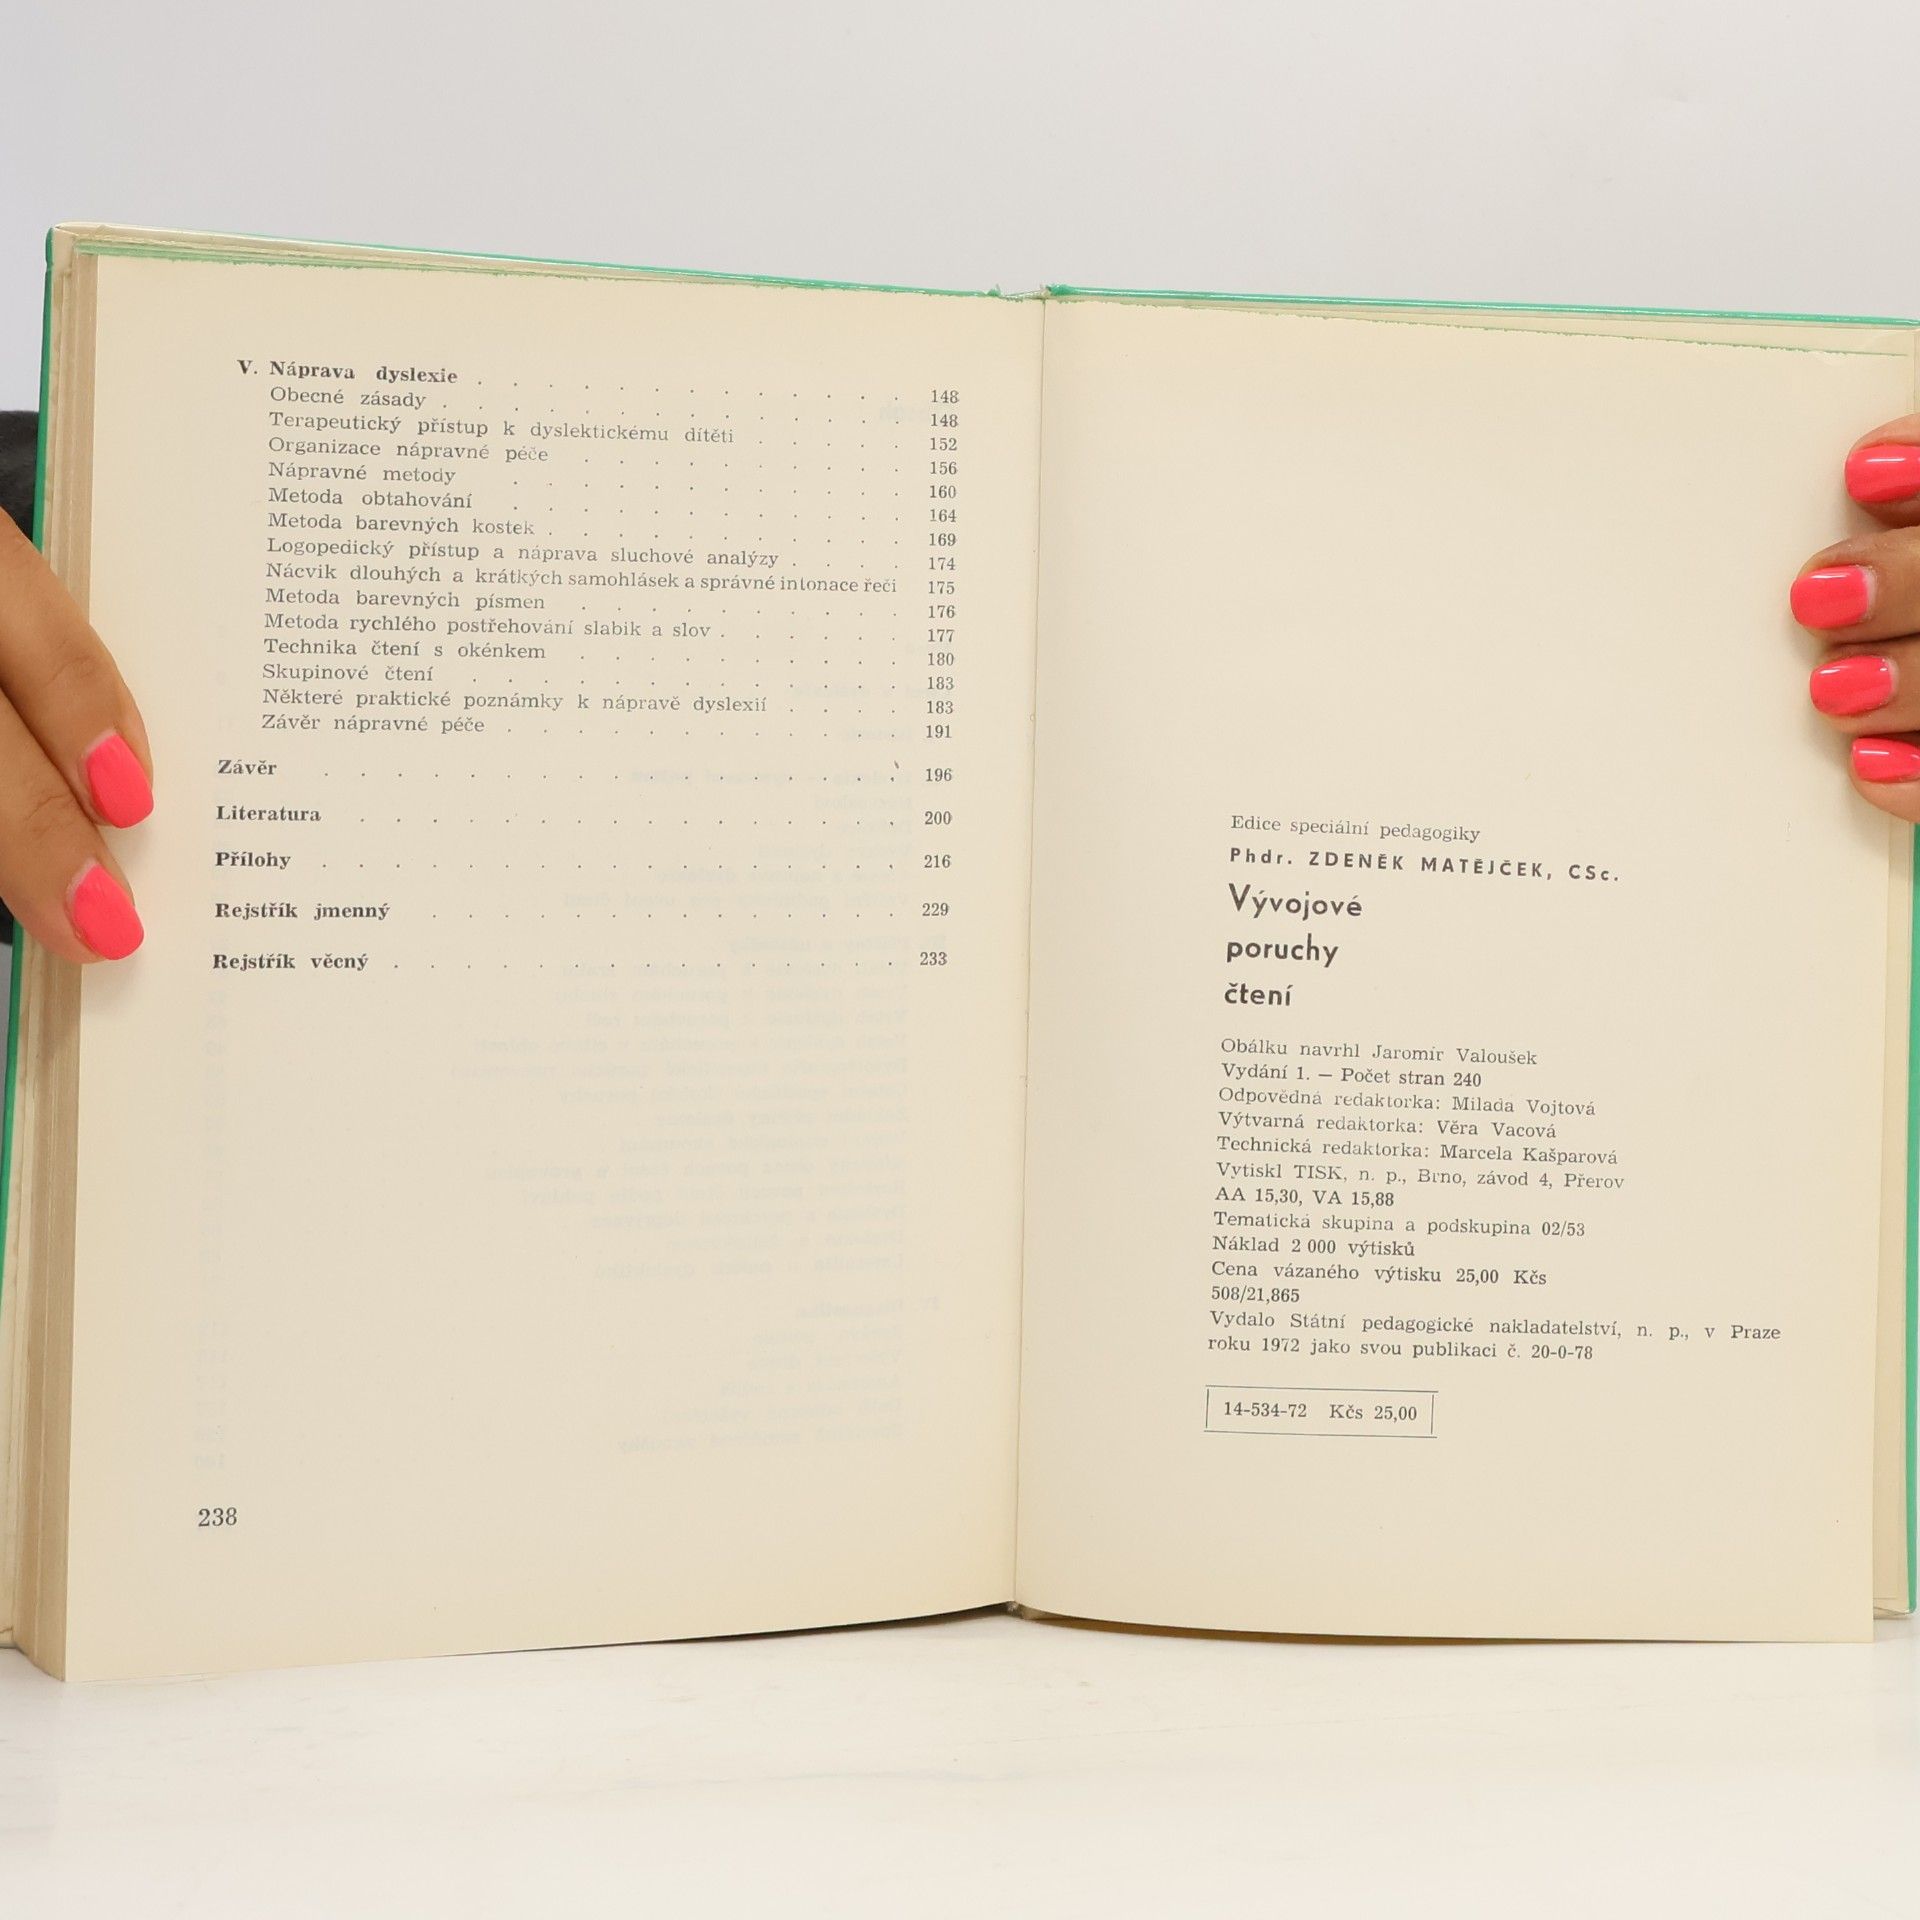 V. Náprava dyslexie . . . . . . . . . . . . 148
Obecné zásady . . . . . . . . . . . . . 148
Terapeutický přístup k dyslektickému dítěti . . . . . 152
Organizace nápravné péče . . . . . . . . . 156
Nápravné metody . . . . . . . . . . . 160
Metoda obtahování . . . . . . . . . . . 164
Metoda barevných kostek . . . . . . . . . . 169
Logopedický přístup a náprava sluchové analýzy . . . . 174
Nácvik dlouhých a krátkých samohlásek a správné intonace řeči 175
Metoda barevných písmen . . . . . . . . . 176
Metoda rychlého postřehování slabik a slov . . . . . 177
Technika čtení s okénkem . . . . . . . . . 180
Skupinové čtení . . . . . . . . . . . . 183
Některé praktické poznámky k nápravě dyslexií . . . . 183
Závěr nápravné péče . . . . . . . . . . . 191
Závěr . . . . . . . . . . . . . . . . 196
Literatura . . . . . . . . . . . . . . . 200
Přílohy . . . . . . . . . . . . . . . . 216
Rejstřík jmenný . . . . . . . . . . . . . 229
Rejstřík věcný . . . . . . . . . . . . . . 233
238
Edice speciální pedagogiky
Phdr. ZDENĚK MATĚJČEK, CSc.
Vývojové
poruchy
čtení
Obálku navrhl Jaromír Valoušek
Vydání 1. — Počet stran 240
Odpovědná redaktorka: Milada Vojtová
Výtvarná redaktorka: Věra Vacová
Technická redaktorka: Marcela Kašparová
Vytiskl TISK, n. p., Brno, závod 4, Přerov
AA 15,30, VA 15,88
Tematická skupina a podskupina 02/53
Náklad 2 000 výtisků
Cena vázaného výtisku 25,00 Kčs
508/21,865
Vydalo Státní pedagogické nakladatelství, n. p., v Praze
roku 1972 jako svou publikaci č. 20-0-78
14-534-72 Kčs 25,00